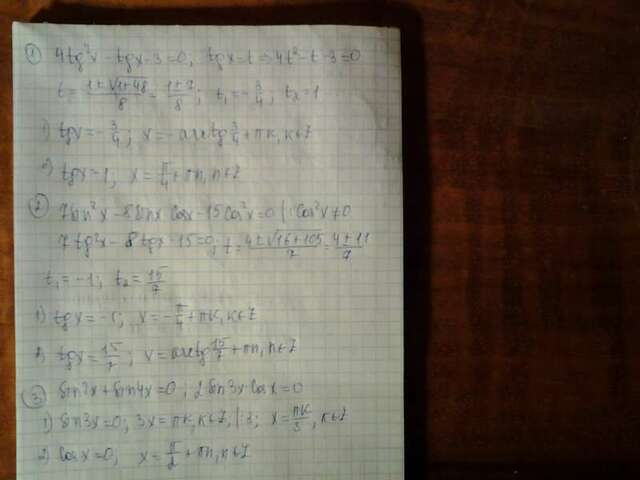 1) 4tg²x - tgx - 3 = 0, tgx = t ⇒ 4t² - t - 3 = 0
t = (1 ± √(1+48))/8 = (1 ± 7)/8; t₁ = -3/4; t₂ = 1
1) tgx = -3/4; x = -arctg 3/4 + πk, k∈Z
2) tgx = 1; x = π/4 + πn, n∈Z
2) 7sin²x - 8sinx cosx - 15cos²x = 0 |: cos²x ≠ 0
7tg²x - 8tgx - 15 = 0; t = (4 ± √(16+105))/7 = (4 ± 11)/7
t₁ = -1; t₂ = 15/7
1) tgx = -1; x = -π/4 + πk, k∈Z
2) tgx = 15/7; x = arctg 15/7 + πn, n∈Z
3) sin2x + sin4x = 0; 2sin3x cosx = 0
1) sin3x = 0; 3x = πk, k∈Z, |:3; x = πk/3, k∈Z
2) cosx = 0; x = π/2 + πn, n∈Z